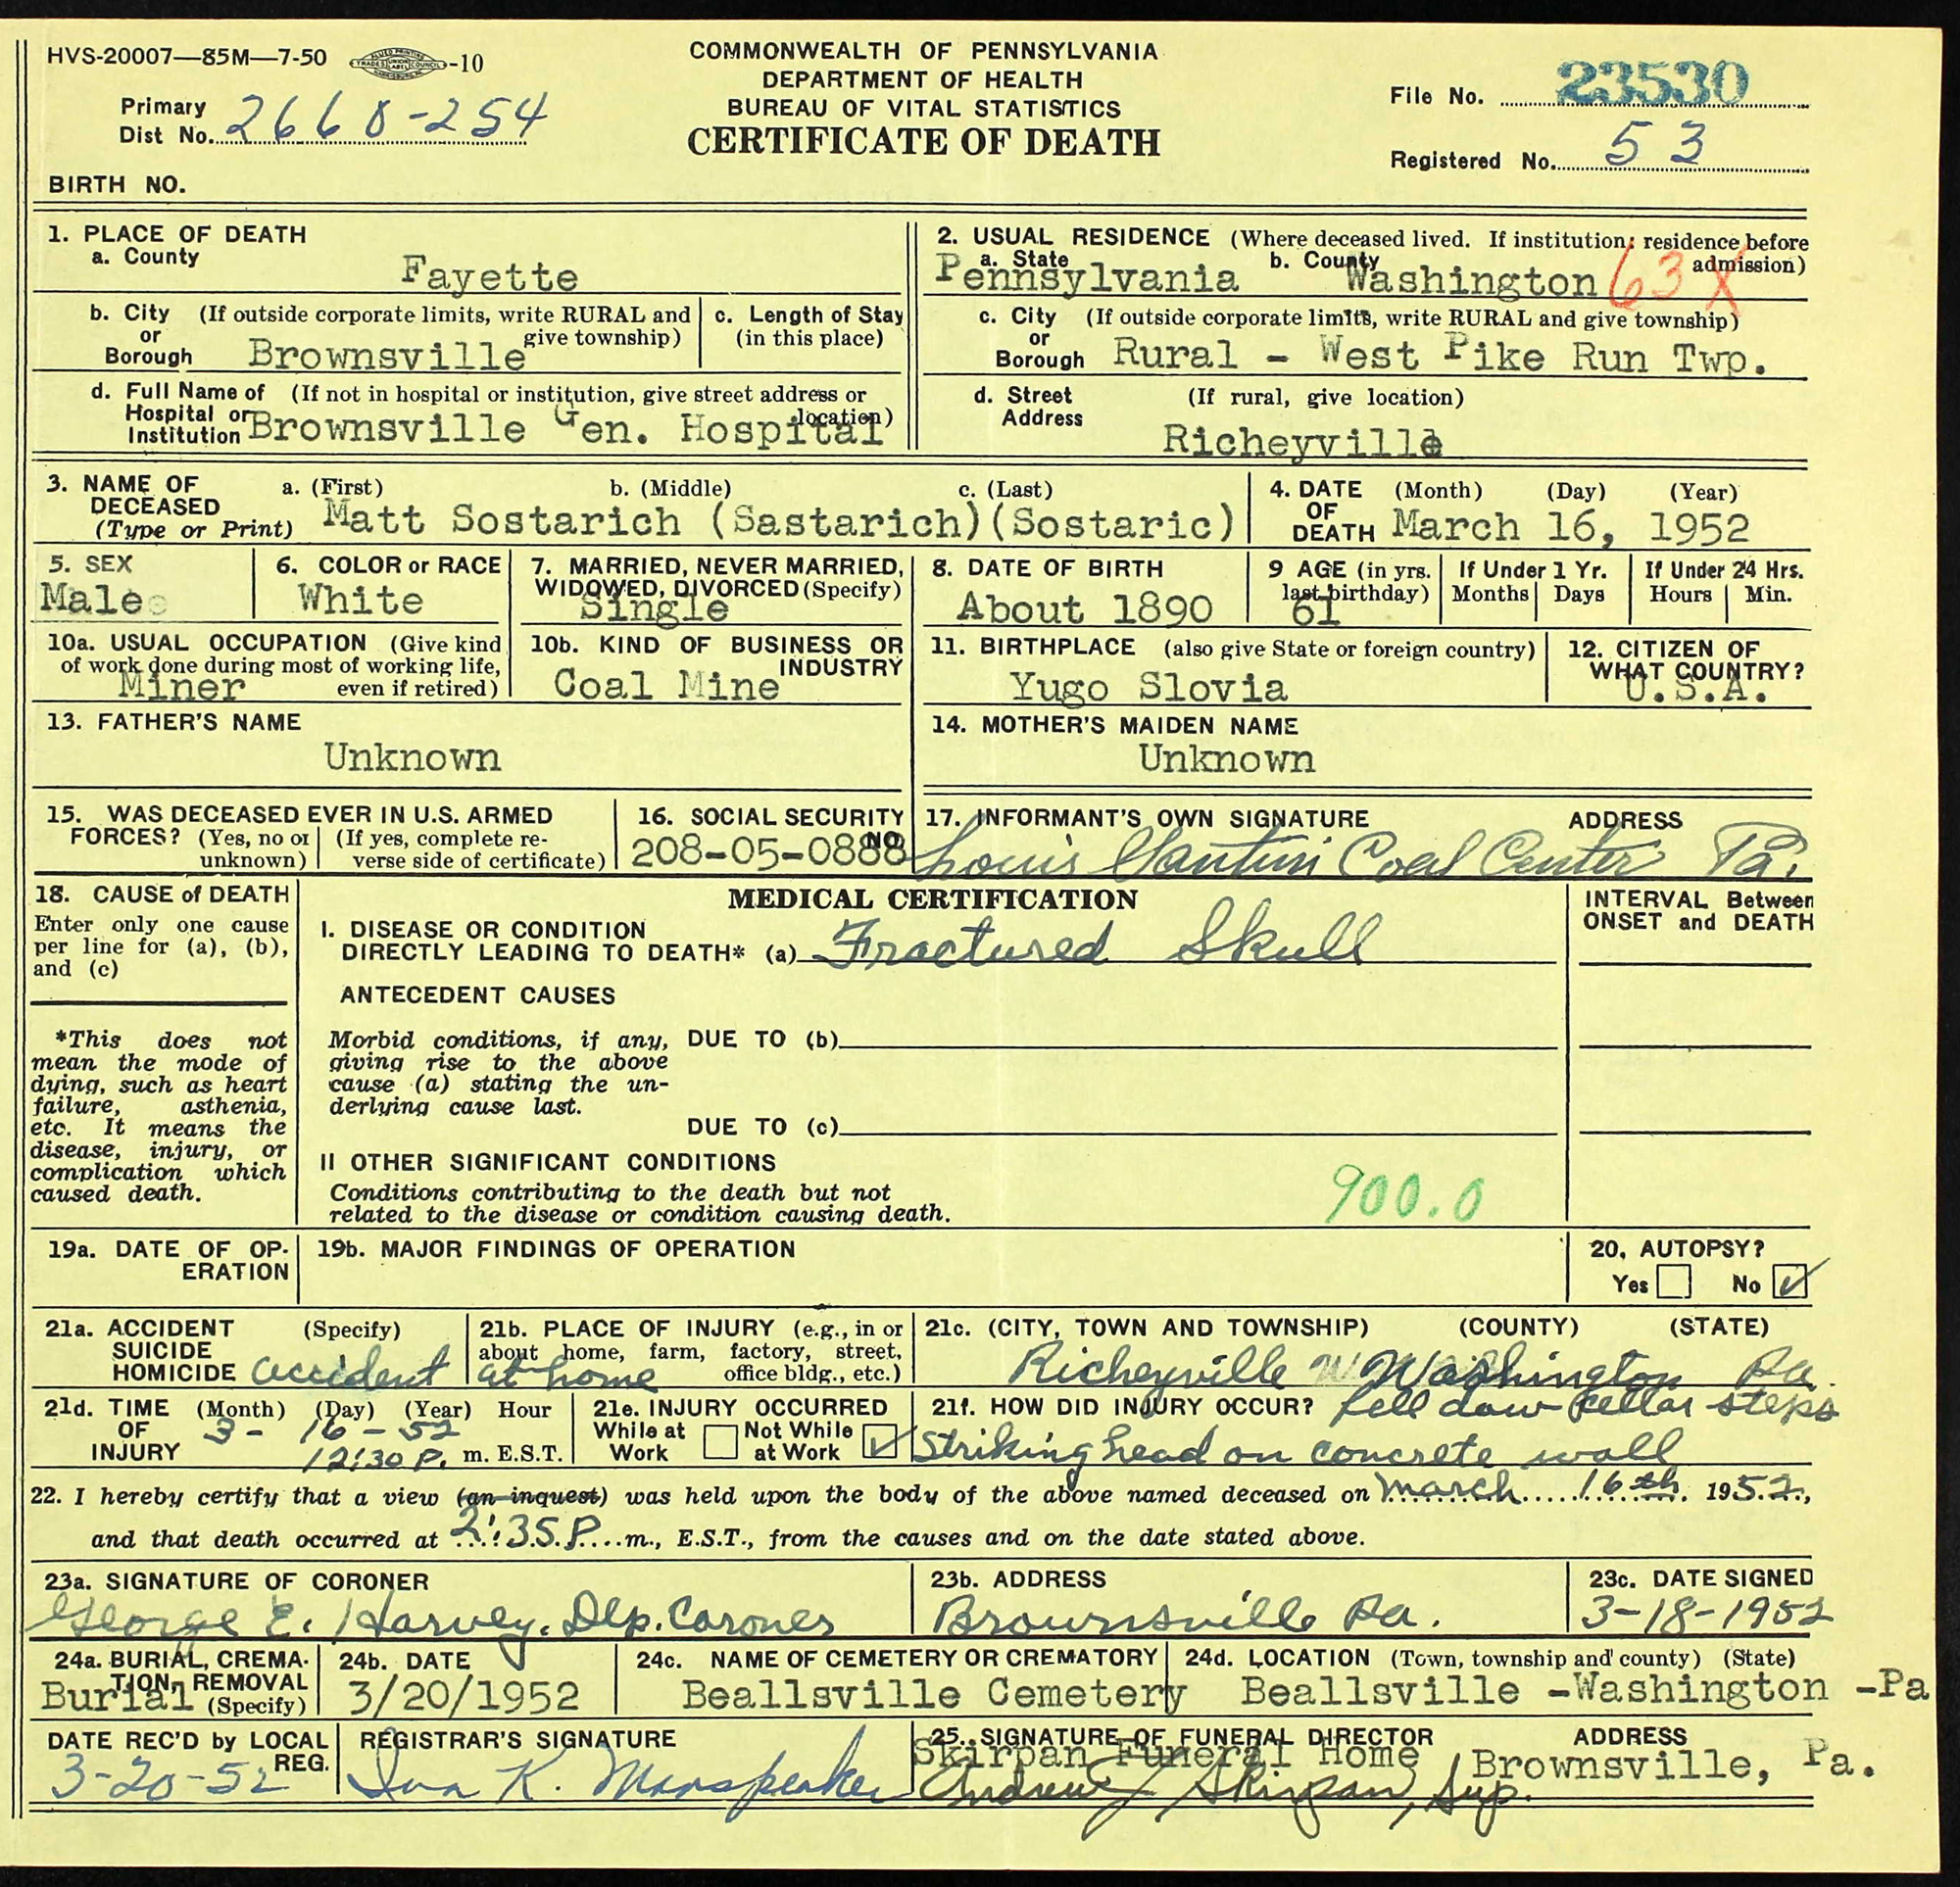 HVS-20007—85M—7-50 -10
COMMONWEALTH OF PENNSYLVANIA
DEPARTMENT OF HEALTH
BUREAU OF VITAL STATISTICS
CERTIFICATE OF DEATH
Primary
Dist No. 2660-254
File No. 23530
Registered No. 53
BIRTH NO.
1. PLACE OF DEATH
a. County
Fayette
b. City (If outside corporate limits, write RURAL and
or give township)
Borough Brownsville
c. Length of Stay
(in this place)
d. Full Name of (If not in hospital or institution, give street address or
Hospital or location)
Institution Brownsville Gen. Hospital
2. USUAL RESIDENCE (Where deceased lived. If institution: residence before
admission)
a. State b. County
Pennsylvania Washington 63 X
c. City (If outside corporate limits, write RURAL and give township)
or
Borough Rural - West Pike Run Twp.
d. Street (If rural, give location)
Address
Richeyville
3. NAME OF a. (First) b. (Middle) c. (Last)
DECEASED
(Type or Print) Matt Sostarich (Sastarich)(Sostaric)
4. DATE (Month) (Day) (Year)
OF
DEATH March 16, 1952
5. SEX
Male
6. COLOR or RACE
White
7. MARRIED, NEVER MARRIED,
WIDOWED, DIVORCED (Specify)
Single
8. DATE OF BIRTH
About 1890
9 AGE (in yrs.
last birthday)
61
If Under 1 Yr.
Months Days
If Under 24 Hrs.
Hours Min.
10a. USUAL OCCUPATION (Give kind
of work done during most of working life,
even if retired)
Miner
10b. KIND OF BUSINESS OR
INDUSTRY
Coal Mine
11. BIRTHPLACE (also give State or foreign country)
Yugo Slovia
12. CITIZEN OF
WHAT COUNTRY?
U.S.A.
13. FATHER'S NAME
Unknown
14. MOTHER'S MAIDEN NAME
Unknown
15. WAS DECEASED EVER IN U.S. ARMED
FORCES? (Yes, no or (If yes, complete re-
unknown) verse side of certificate)
16. SOCIAL SECURITY
NO.
208-05-0888
17. INFORMANT'S OWN SIGNATURE ADDRESS
Louis Coal Center Pa.
18. CAUSE of DEATH
Enter only one cause
per line for (a), (b),
and (c)
*This does not
mean the mode of
dying, such as heart
failure, asthenia,
etc. It means the
disease, injury, or
complication which
caused death.
MEDICAL CERTIFICATION
I. DISEASE OR CONDITION
DIRECTLY LEADING TO DEATH* (a) Fractured Skull
ANTECEDENT CAUSES
Morbid conditions, if any, DUE TO (b)
giving rise to the above
cause (a) stating the un-
derlying cause last.
DUE TO (c)
II OTHER SIGNIFICANT CONDITIONS
Conditions contributing to the death but not
related to the disease or condition causing death.
900.0
INTERVAL Between
ONSET and DEATH
19a. DATE OF OP-
ERATION
19b. MAJOR FINDINGS OF OPERATION
20. AUTOPSY?
Yes No ✓
21a. ACCIDENT (Specify)
SUICIDE
HOMICIDE accident
21b. PLACE OF INJURY (e.g., in or
about home, farm, factory, street,
office bldg., etc.)
at home
21c. (CITY, TOWN AND TOWNSHIP) (COUNTY) (STATE)
Richeyville Washington Pa.
21d. TIME (Month) (Day) (Year) Hour
OF 3- 16-52
INJURY 12:30 P. m. E.S.T.
21e. INJURY OCCURRED
While at Not While
Work at Work ✓
21f. HOW DID INJURY OCCUR? fell dow cellar steps
striking head on concrete wall
22. I hereby certify that a view (an inquest) was held upon the body of the above named deceased on March 16th 1952,
and that death occurred at 2:35 P. m., E.S.T., from the causes and on the date stated above.
23a. SIGNATURE OF CORONER
George E. Harvey. Dep. Coroner
23b. ADDRESS
Brownsville Pa.
23c. DATE SIGNED
3-18-1952
24a. BURIAL, CREMA-
TION, REMOVAL
(Specify)
Burial
24b. DATE
3/20/1952
24c. NAME OF CEMETERY OR CREMATORY
Beallsville Cemetery
24d. LOCATION (Town, township and county) (State)
Beallsville -Washington -Pa
DATE REC'D by LOCAL
REG.
3-20-52
REGISTRAR'S SIGNATURE
Iva K. Manspeaker
25. SIGNATURE OF FUNERAL DIRECTOR ADDRESS
Skirpan Funeral Home Brownsville, Pa.
Andrew J Skirpan, Sup.